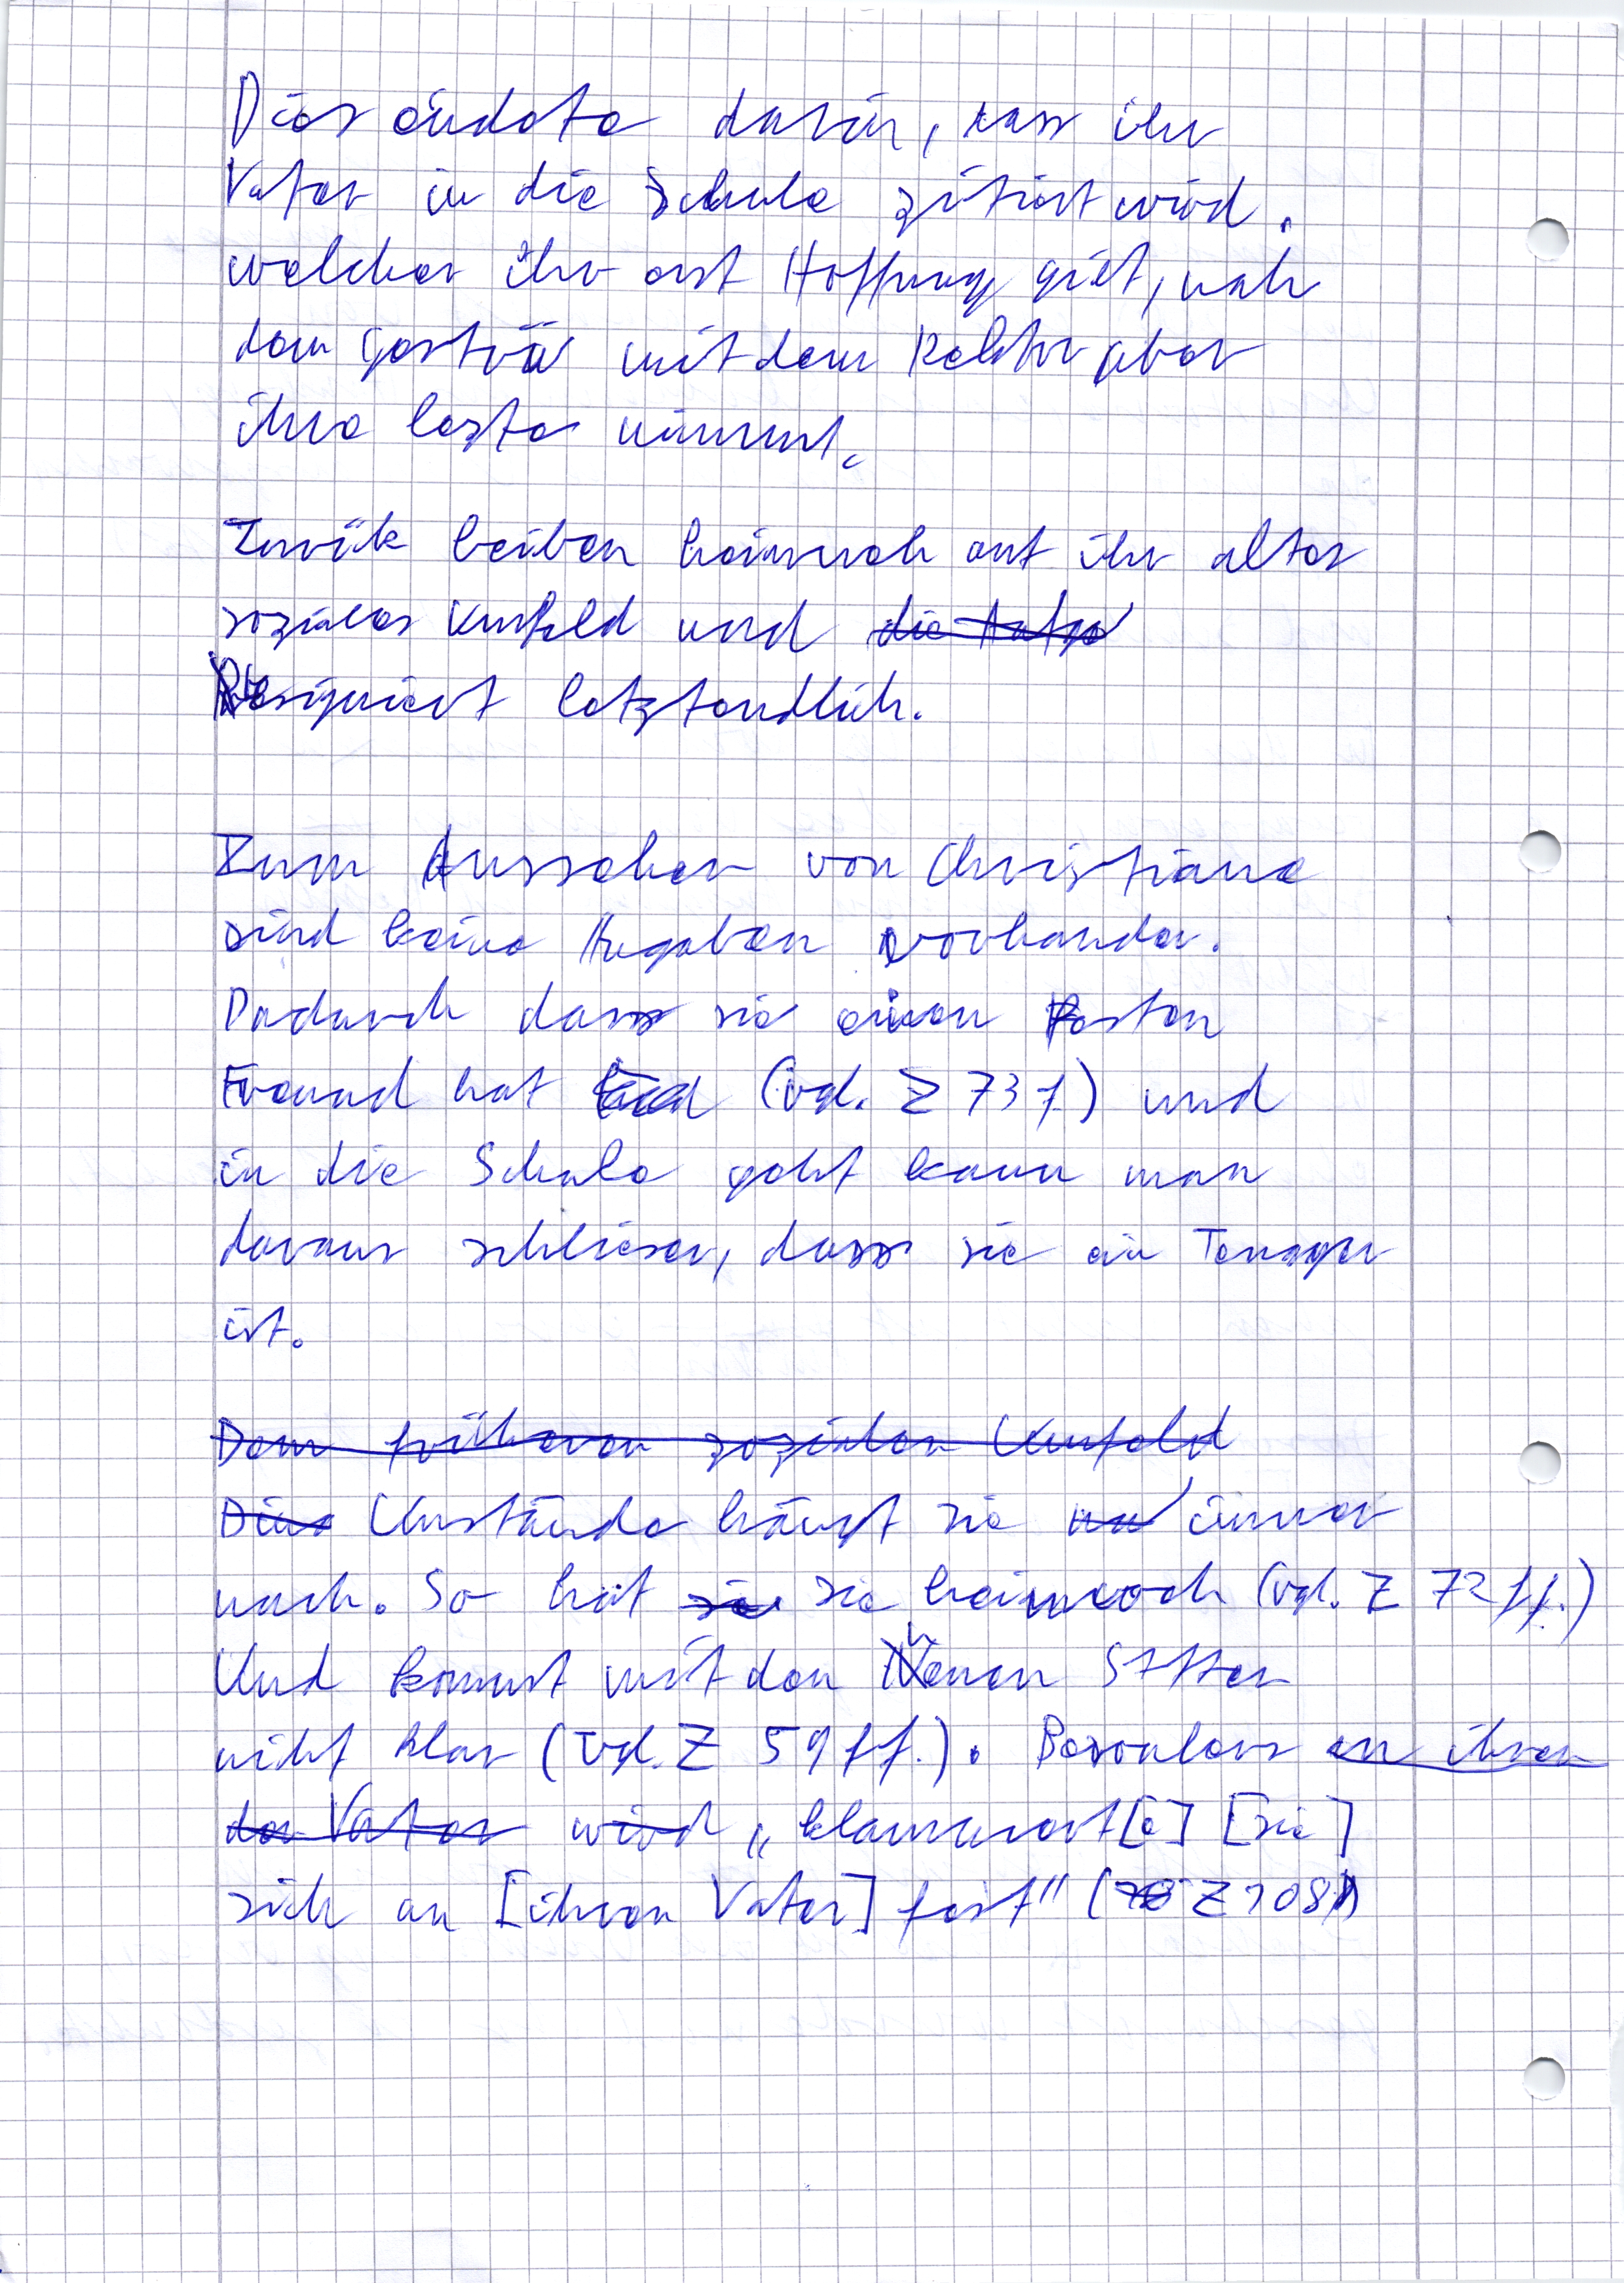 Dies endete darin, dass ihr
Vater in die Schule zitiert wird.
welcher ihr erst Hoffnung gibt, nah
dem mit dem Rektor aber
ihre lezte nimmt.
Zurük bleiben heimweh ant ihr altes
soziales Umfeld und die
Resigniert letztendlich.
Zum Aussehen von Christiane
sind keine Angaben vorhanden.
Dadurch dass sie einen festen
Freund hat (vgl. Z 73 f) und
in die Schule geht kann man
daraus schliesen, dass sie ein Tenager
ist.
Dem früheren sozialen Umfeld
Diese Umstände hängt sie immer
nach. So hat sie sie heimwoh (vgl. Z 72 ff.)
Und kommt mit den neuen Sitten
niht klar (Vgl. Z 59 ff.). Besonders an ihren
der Vater wird „klammert[e] [sie]
sich an [ihren Vater] fest" (Z 108)